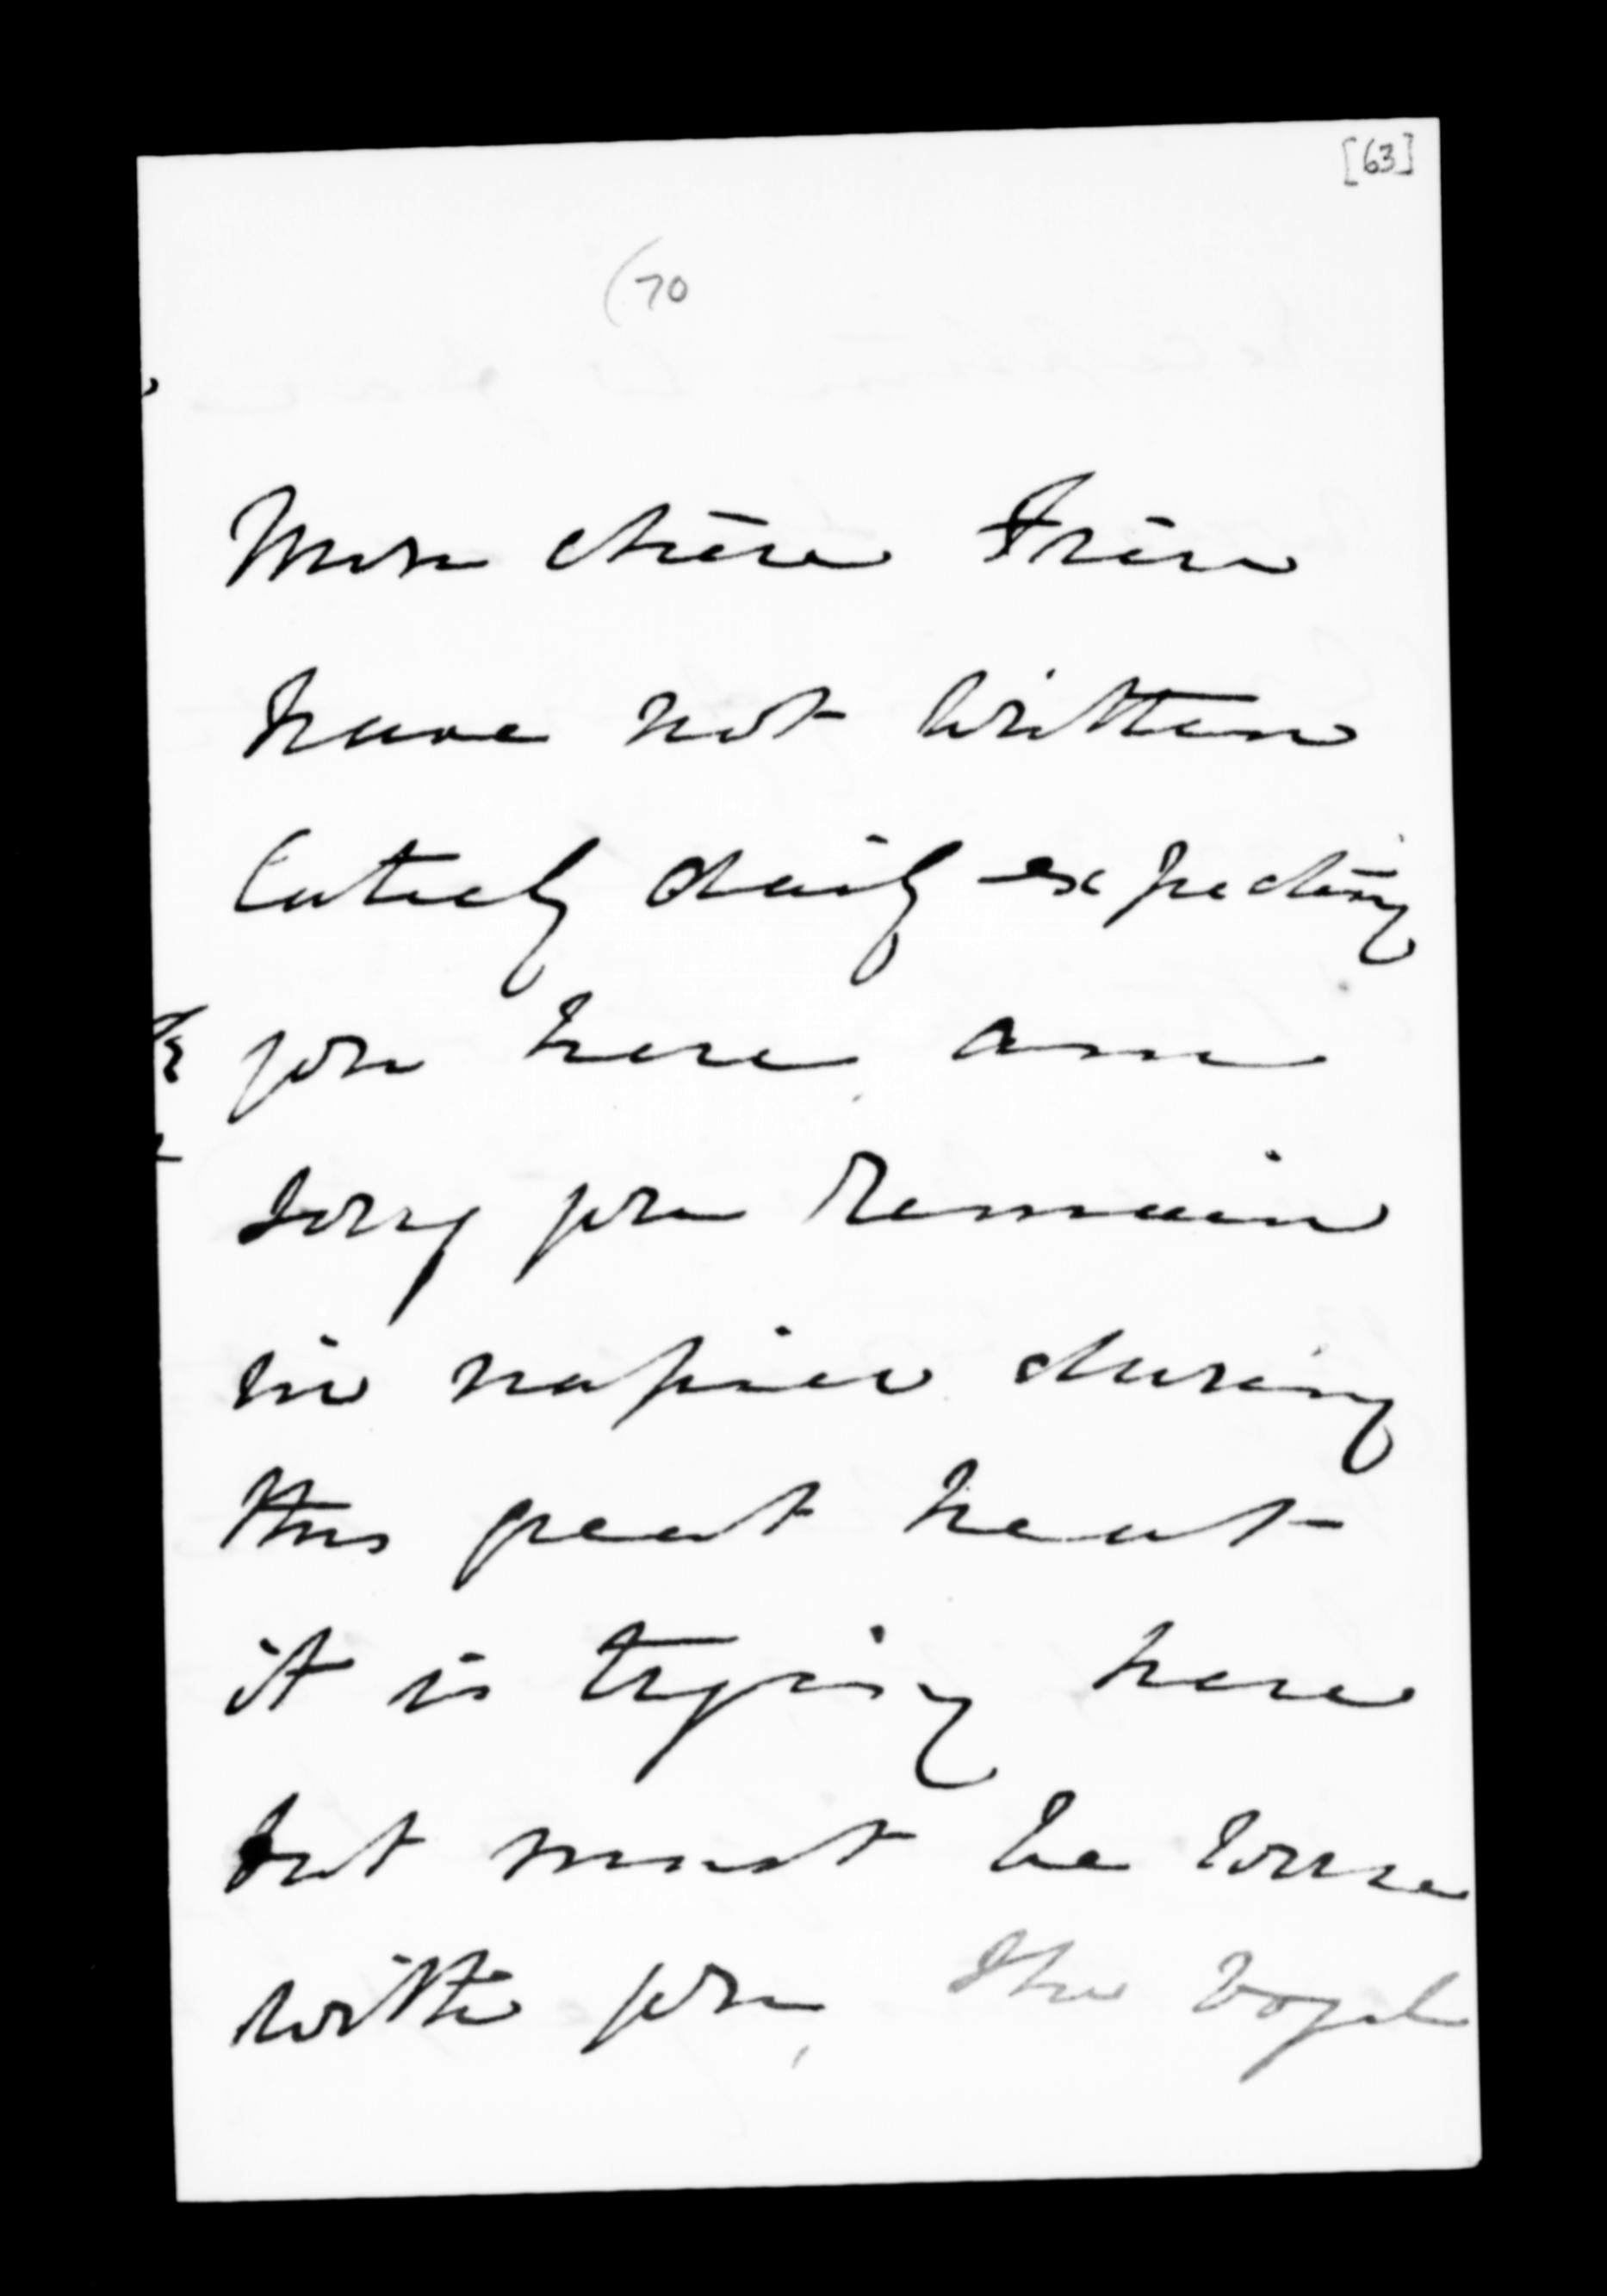 [63]
(70
Mon chère Frère
have not written
lately daily expecting
you here am
sorry you remain
in napier during
this great heat
it is trying here
but must be worse
with you, The